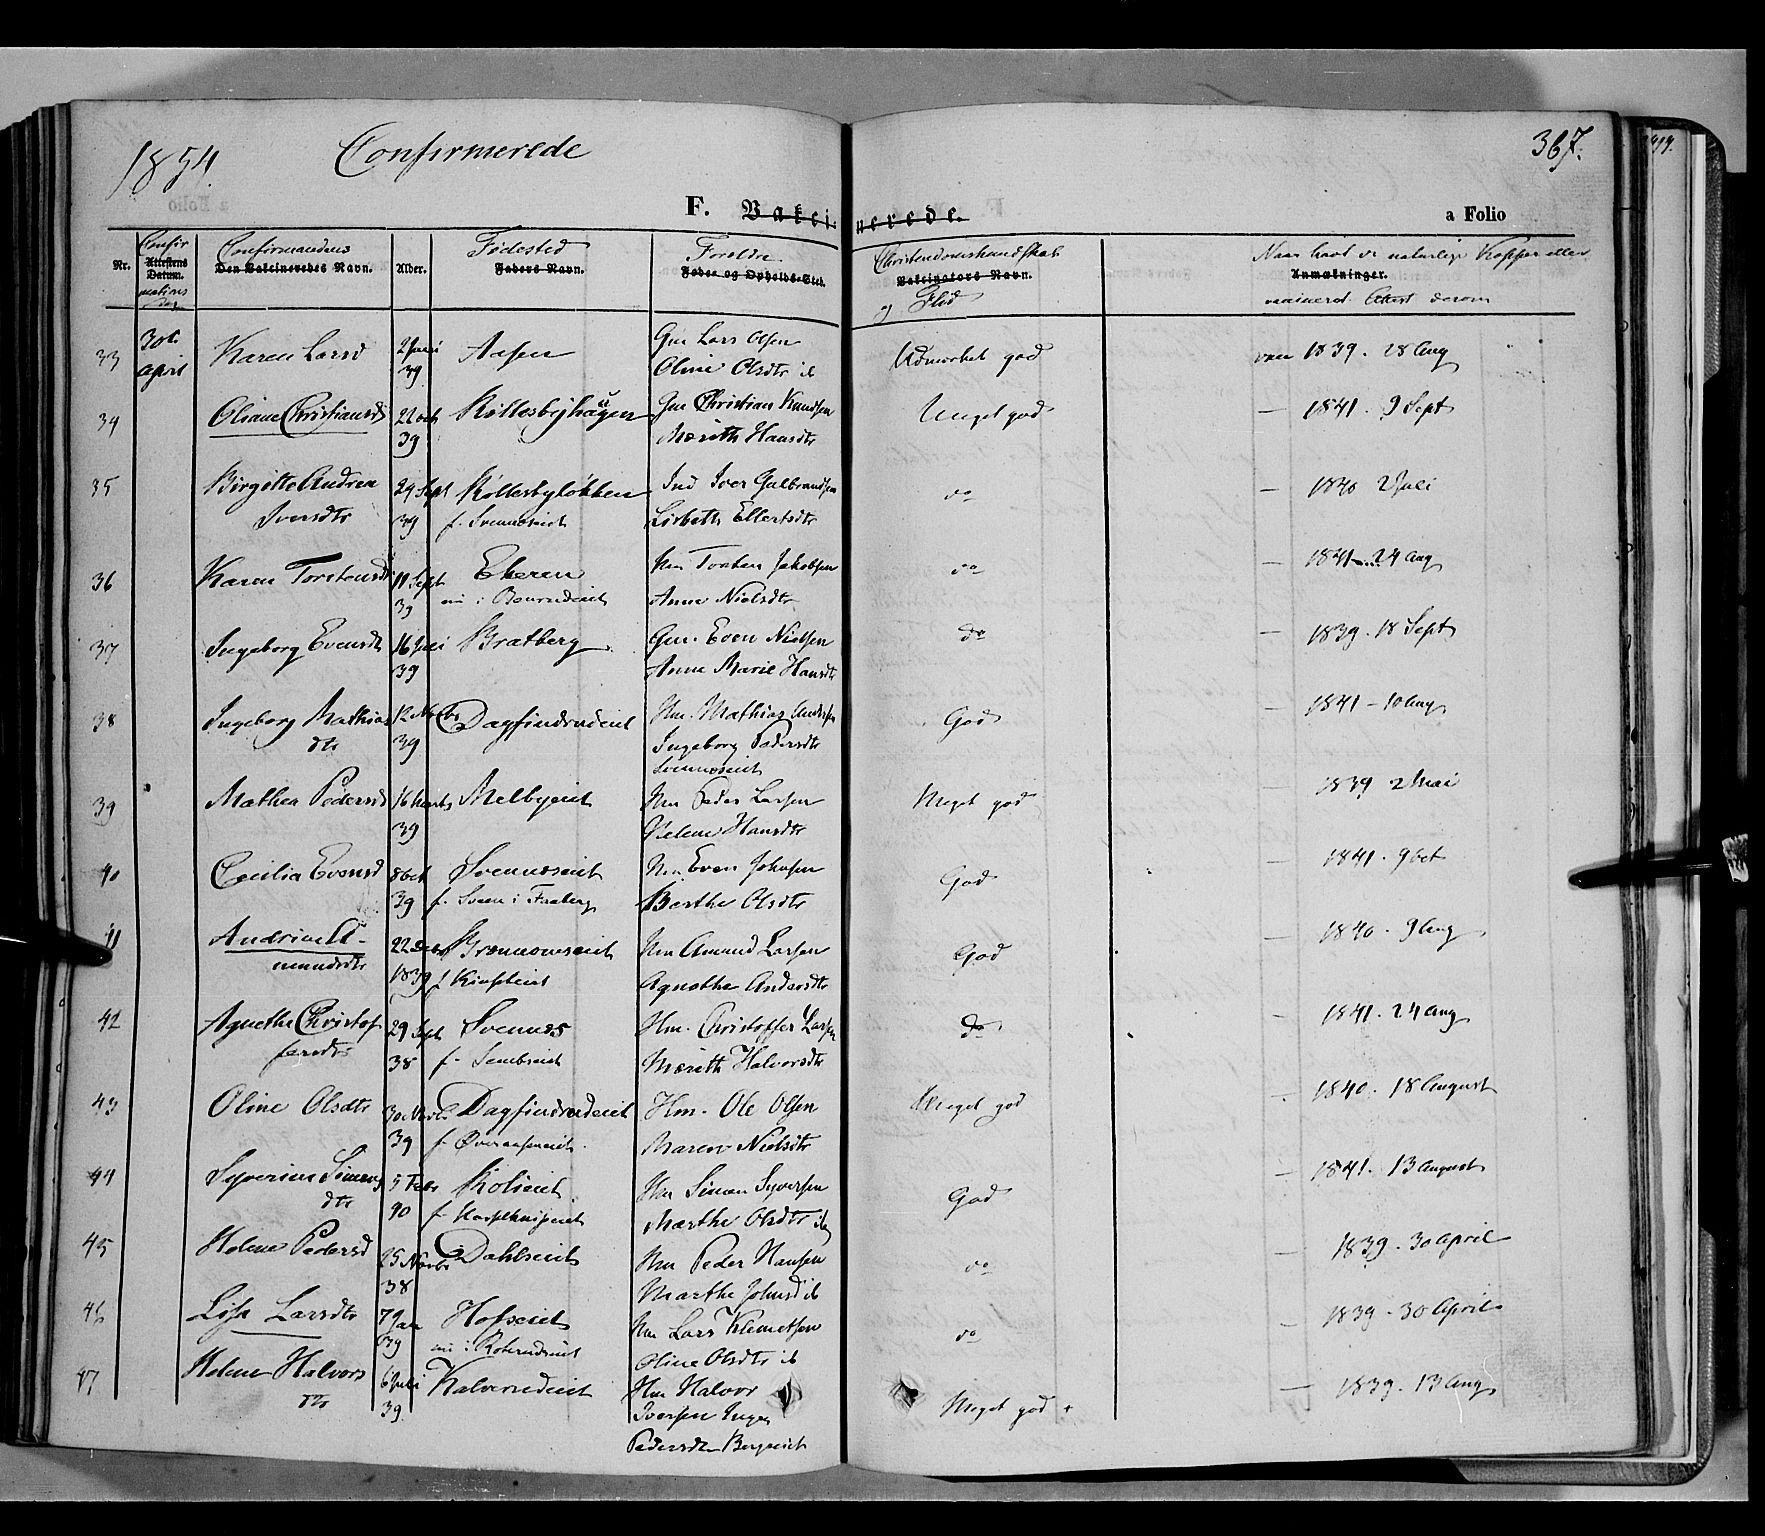 1854. Confirmerede 367.
F. Vakcinerede. a Folio
Nr. Confirmations Dag Attestens Datum. Confirmandens Den Vakcineredes Navn. Alder. Fødested Faders Navn. Foreldre Fødse og Opholds-Sted. Christendomskundskab og Flid Vakcinators Navn. Naar havt de naturlige Kopper eller vacineret Attest derom Anmærkninger.
33 30te April Karen Larsd 39 Aasen Gm Lars Olsen
Oline Olsdtr ib Udmærket god vac 1839. 28 Aug
34 Oliane Christiansd 22 oct 39 Gm Christian Knudsen
Mærith Hansdtr Meget god — 1841. 9 Sept
35 Birgitte Andrea 24 Sept Køllesbyløkken Ind Iver Gulbrandsen do — 1840 2 Juli
Iversdtr 39 f. Svennæseiet Lisbeth Ellertsdtr
36 Karen Torstensdr 11 Sept Ekeren Hm Torsten Jakobsen do — 1841 24 Aug
39 nu i Anne Nielsdtr
37 Ingeborg Evensdt 16 Juli Bratberg Gm. Even Nielsen do — 1839. 18 Sept
39 Anne Marie Hansdtr
38 Ingeborg Mathias 12 Novbr Dagfindrudeiet Hm. Mathias Andersen God — 1841 - 10 Aug
dtr 39 Ingeborg Pedersdtr
Svennæseiet
39 Mathea Pedersd 16 Marts Melbyeiet Hm Peder Larsen Meget god — 1839 2 Mai
39 Helene Hansdtr
40 Cecilia Evensd 8 oct Svennæseiet Hm Even Johnsen God — 1841. 9 oct
39 f. Sveen i Faaberg Berthe Olsdtr
41 Andrine A- 22 Decbr Hm Amund Larsen God — 1840. 9 Aug
mundsdtr 1839 f Agnethe Andersdtr
42 Agnethe Christof 29 Sept Svennæs Hm. Christoffer Larsen do - 1841. 24 Aug
fersdtr 38 f. Mærith Halvorsdtr
43 Oline Olsdtr 30 Novbr Dagfindrudeiet Hm. Ole Olsen Meget god - 1840. 18 August
39 f. Maren Nielsdtr
44 Syverine Simens 5 Febr Hm Simen Syversen God — 1841. 13 August
dtr 40 f. Marthe Olsdtr ib
45 Helene Pedersd 25 Novbr Dahlseiet Hm Peder Hansen do — 1839. 30 April
38 Marthe Johnsd ib
46 Lisa Larsdtr 7 Jan Hofseiet Hm Lars Klemetsen do — 1839. 30 April
39 nu i Oline Olsdtr ib
47 Helene Halvors 6 Juli Kalverudeiet Hm Halvor Meget god + — 1839. 13 Aug
dtr 39. Iversen Inger
Pedersdtr Bergseiet